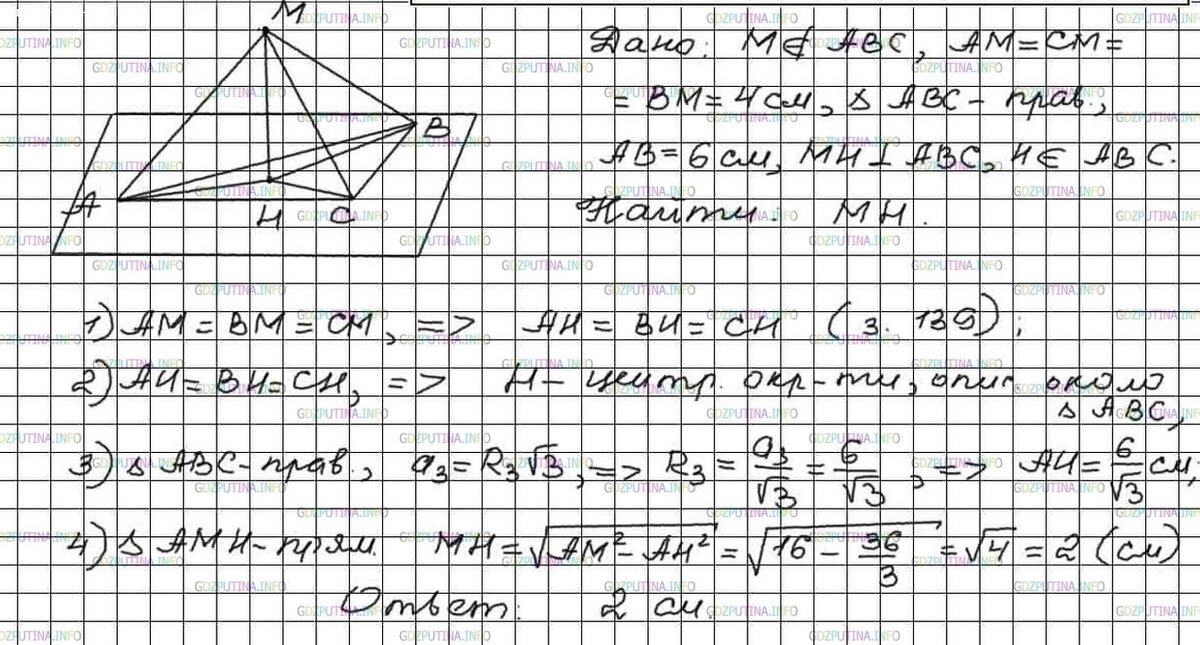 M
A
B
H
C
Дано: M ∉ ABC, AM = CM =
= BM = 4 см, △ ABC - прав.,
AB = 6 см, MH ⊥ ABC, H ∈ ABC.
Найти: MH.
1) AM = BM = CM, => AH = BH = CH (з. 139);
2) AH = BH = CH, => H - центр. окр-ти, опис. около
△ ABC,
3) △ ABC - прав., a₃ = R₃√3, => R₃ = a₃/√3 = 6/√3, => AH = 6/√3 см;
4) △ AMH - прям. MH = √(AM² - AH²) = √(16 - 36/3) = √4 = 2 (см)
Ответ: 2 см.
GDZPUTINA.INFO